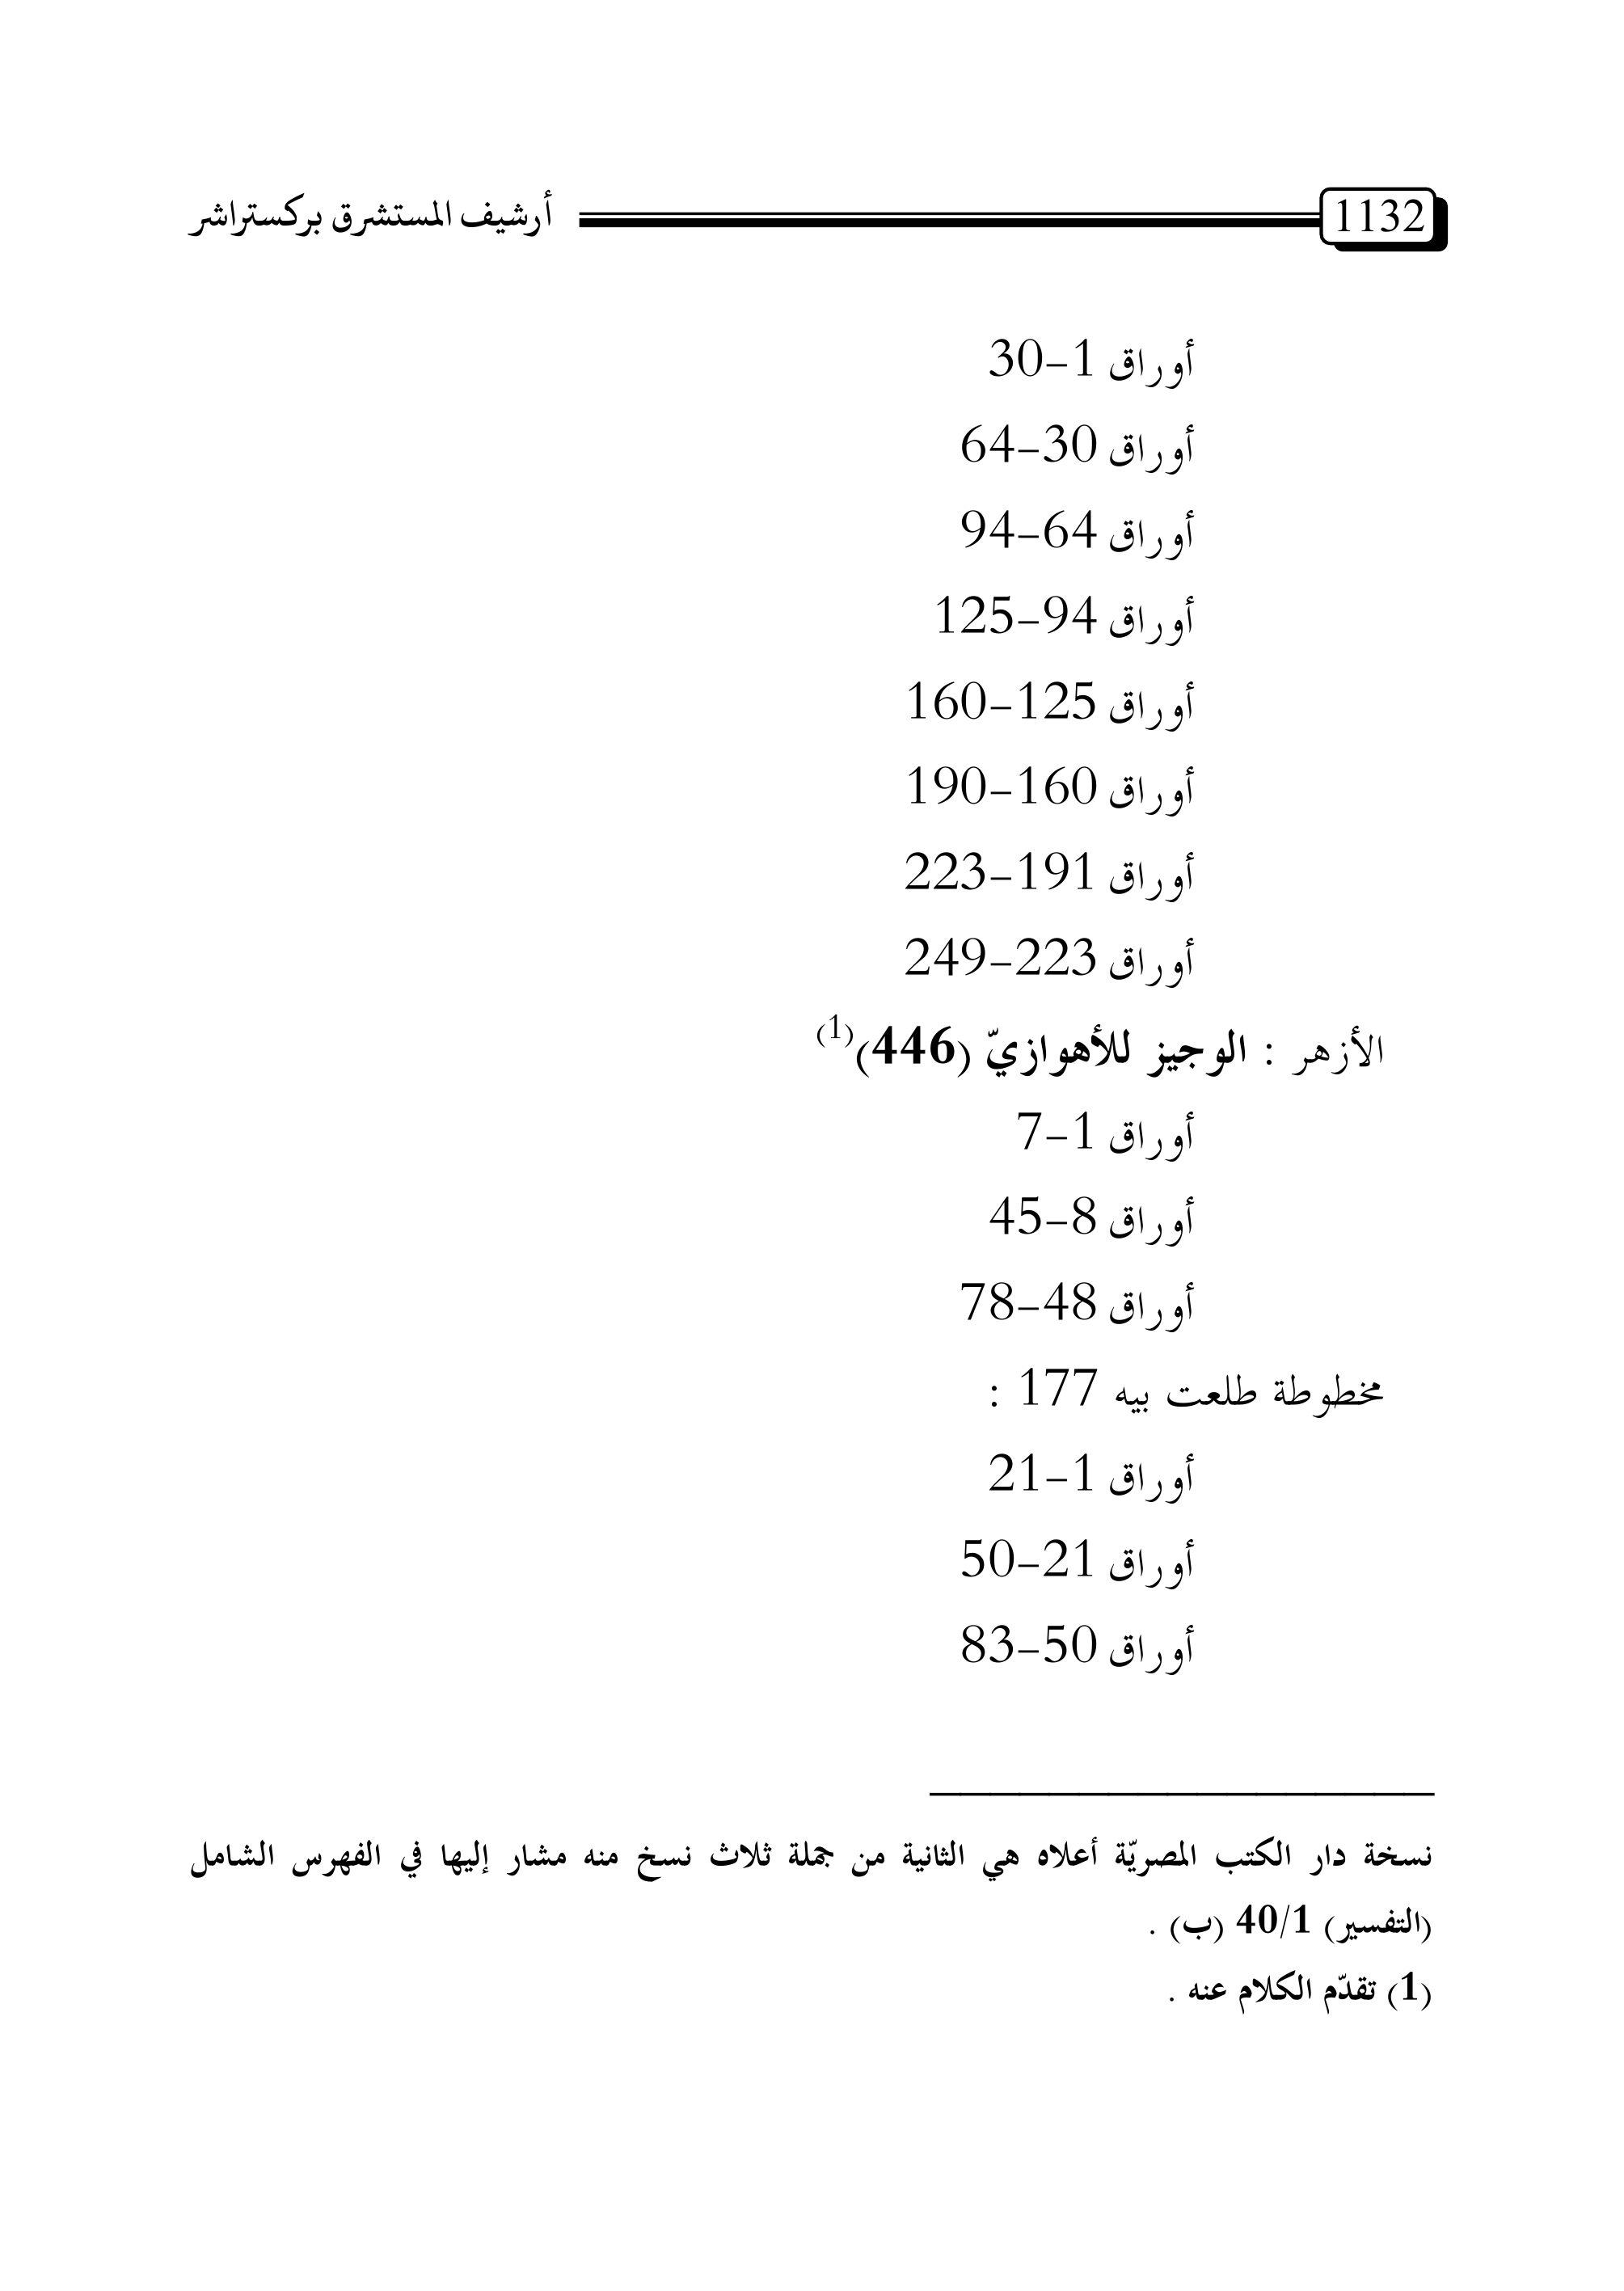 1132 أرشيف المستشرق بركستراشر
أوراق 1–30
أوراق 30–64
أوراق 64–94
أوراق 94–125
أوراق 125–160
أوراق 160–190
أوراق 191–223
أوراق 223–249
الأزهر : الوجيز للأهوازيّ (446)(1)
أوراق 1–7
أوراق 8–45
أوراق 48–78
مخطوطة طلعت بيه 177 :
أوراق 1–21
أوراق 21–50
أوراق 50–83
نسخة دار الكتب المصريّة أعلاه هي الثانية من جملة ثلاث نسخ منه مشار إليها في الفهرس الشامل
(التفسير) 40/1 (ب) .
(1) تقدّم الكلام عنه .